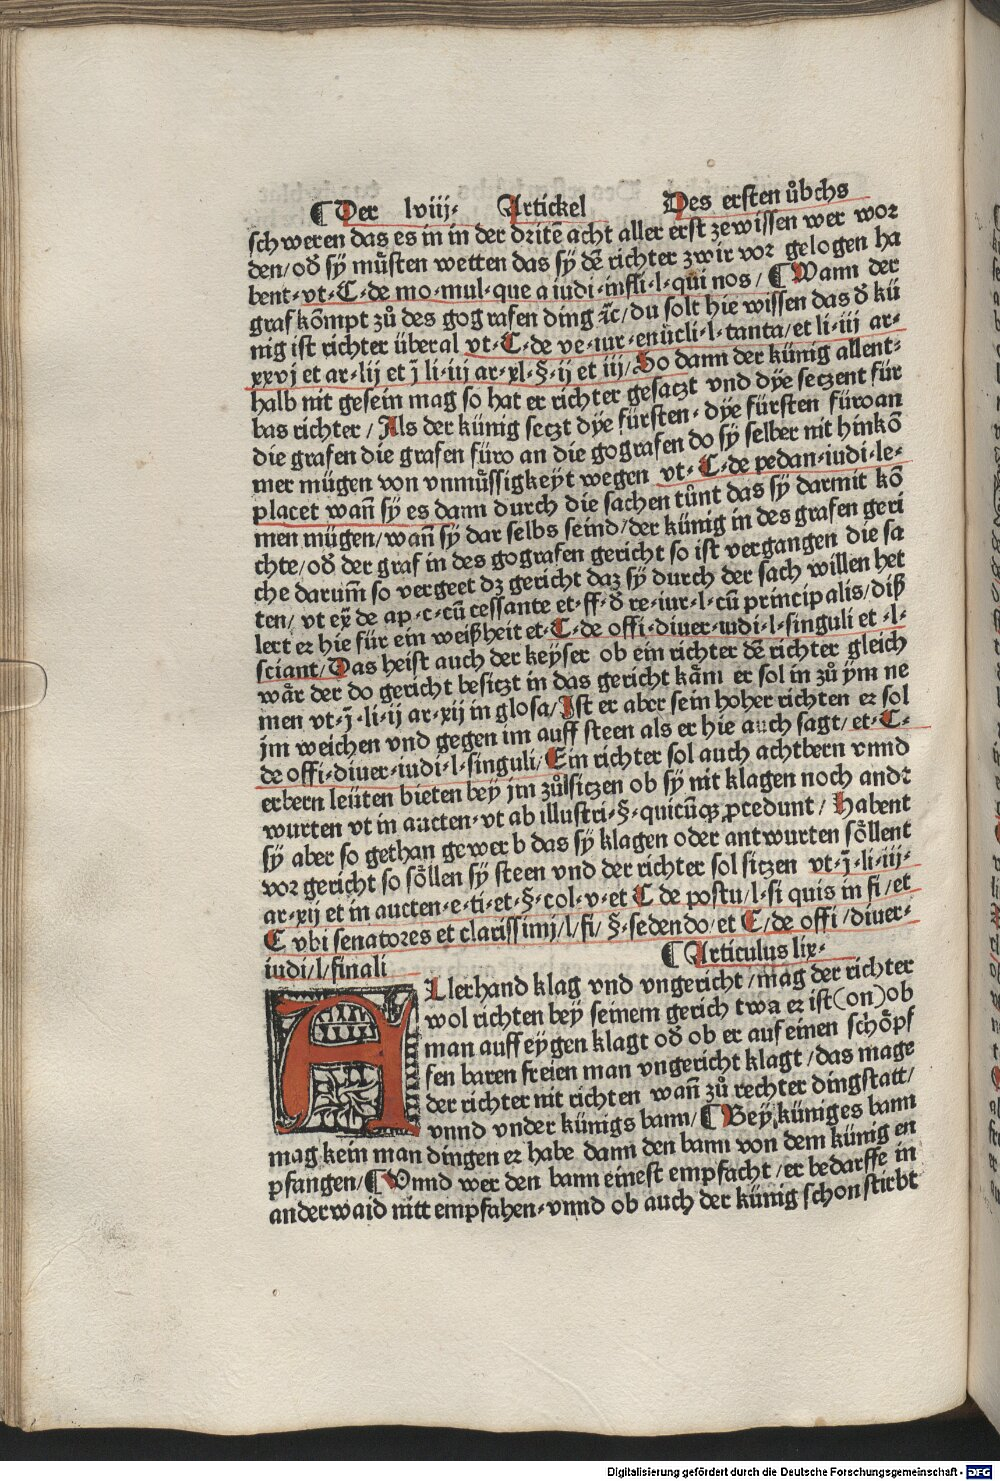 ¶ Der lviij· Artickel Des ersten ůbchs
schweren das es in in der drite acht aller erst zewissen wer wor
den/ od̄ sy můsten wetten das sy dē richter zwir vor gelogen ha
bent· vt· C· de mo·mul·que a iudi·infli·l·qui nos/ ¶ Wann der
graf kōmpt zů des gografen ding ꝛc̄/ du solt hie wissen das d̄ kü
nig ist richter überal vt·C·de ve·iur·enücli·l·tanta/et li·iij ar·
xxvj et ar·lij et j̄ li·iij ar·xl·§·ij et iij/ So dann der künig allent·
halb nit gesein mag so hat er richter gesaczt vnd dye seczent für
bas richter / Als der künig seczt dÿe fürsten· dÿe fürsten füroan
die grafen die grafen füro an die gografen do sÿ selber nit hinkō
mer mügen von vnmůssigkeÿt wegen vt· C·de pedan·iudi·le·
placet wañ sÿ es dann durch die sachen tůnt das sÿ darmit kō
men mügen/ wañ sÿ dar selbs seind/ der künig in des grafen geri
chte/ od̄ der graf in des gografen gericht so ist vergangen die sa
che darum̄ so vergeet dz gericht daz sÿ durch der sach willen het
ten/ vt ex̄ de ap·c·cū cessante et·ff·d̄ re·iur·l·cū principalis/ diß
lert er hie für ein weißheit et·C·de offi·diuer·iudi·l·singuli et ·l·
sciant/ Das heist auch der keÿser ob ein richter dē richter gleich
wår der do gericht besiczt in das gericht kåm er sol in zů ÿm ne
men vt·j̄·li·ij ar·xij in glosa/ Ist er aber sein hoher richten er sol
jm weichen vnd gegen im auff steen als er hie auch sagt/ et·C·
de offi·diuer·iudi·l·singuli/ Ein richter sol auch achtbern vnnd
erbern leüten bieten bey jm zůlsiczen ob sÿ nit klagen noch andr
wurten vt in aucten·vt ab illustri·§·quicūqꝫ ꝓcedunt / Habent
sÿ aber so gethan gewer b das sÿ klagen oder antwurten sőllent
vor gericht so sőllen sÿ steen vnd der richter sol siczen vt·j̄·li·iij·
ar·xij et in aucten·e·ti·et·§·col·v·et C de postu/l·si quis in fi/ et
C vbi senatores et clarissimj/l/fi/ §·sedendo/et C/de offi /diuer·
iudi/l/finali ¶ Articulus lix·
ALlerhand klag vnd vngericht /mag der richter
wol richten bey seinem gerich twa er ist(on)ob
man auff eÿgen klagt od̄ ob er auf einen schőpf
fen baren freien man vngericht klagt /das mage
der richter nit richten wañ zů rechter dingstatt/
vnnd vnder künigs bann/ ¶ Beÿ küniges bann
mag kein man dingen er habe dann den bann von dem künig en
pfangen/ ¶ Vnnd wer den bann einest empfacht /er bedarffe in
anderwaid nitt empfahen·vnnd ob auch der künig schon stirbt
Digitalisierung gefördert durch die Deutsche Forschungsgemeinschaft - DFG